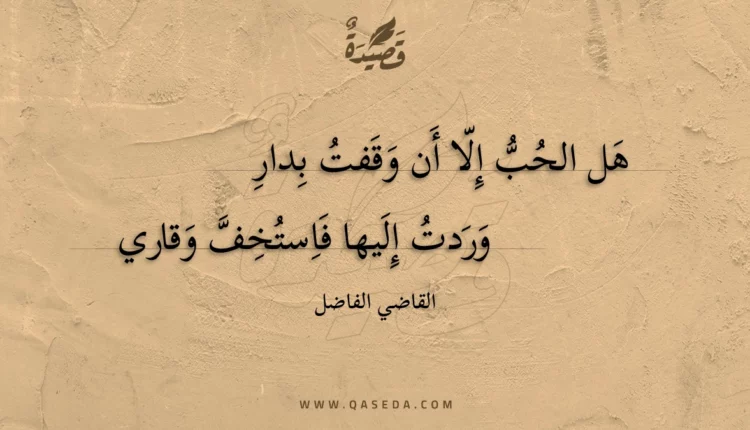 قَصِيدَةٌ
هَل الحُبُّ إِلّا أَن وَقَفتُ بِدارِ
وَرَدتُ إِلَيها فَاِستُخِفَّ وَقاري
القاضي الفاضل
WWW.QASEDA.COM